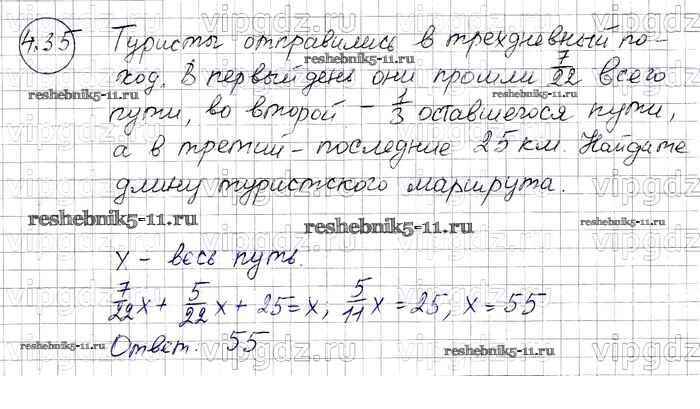 4.35 Туристы отправились в трехдневный по-
ход. В первый день они прошли 7/22 всего
reshebnik5-11.ru reshebnik5-11.ru
пути, во второй – 1/3 оставшегося пути,
а в третий – последние 25 км. Найдите
длину туристского маршрута.
reshebnik5-11.ru reshebnik5-11.ru reshebnik5-11.ru
x – весь путь.
7/22 x + 5/22 x + 25 = x; 5/11 x = 25, x = 55
Ответ: 55
reshebnik5-11.ru reshebnik5-11.ru
vipgdz.ru